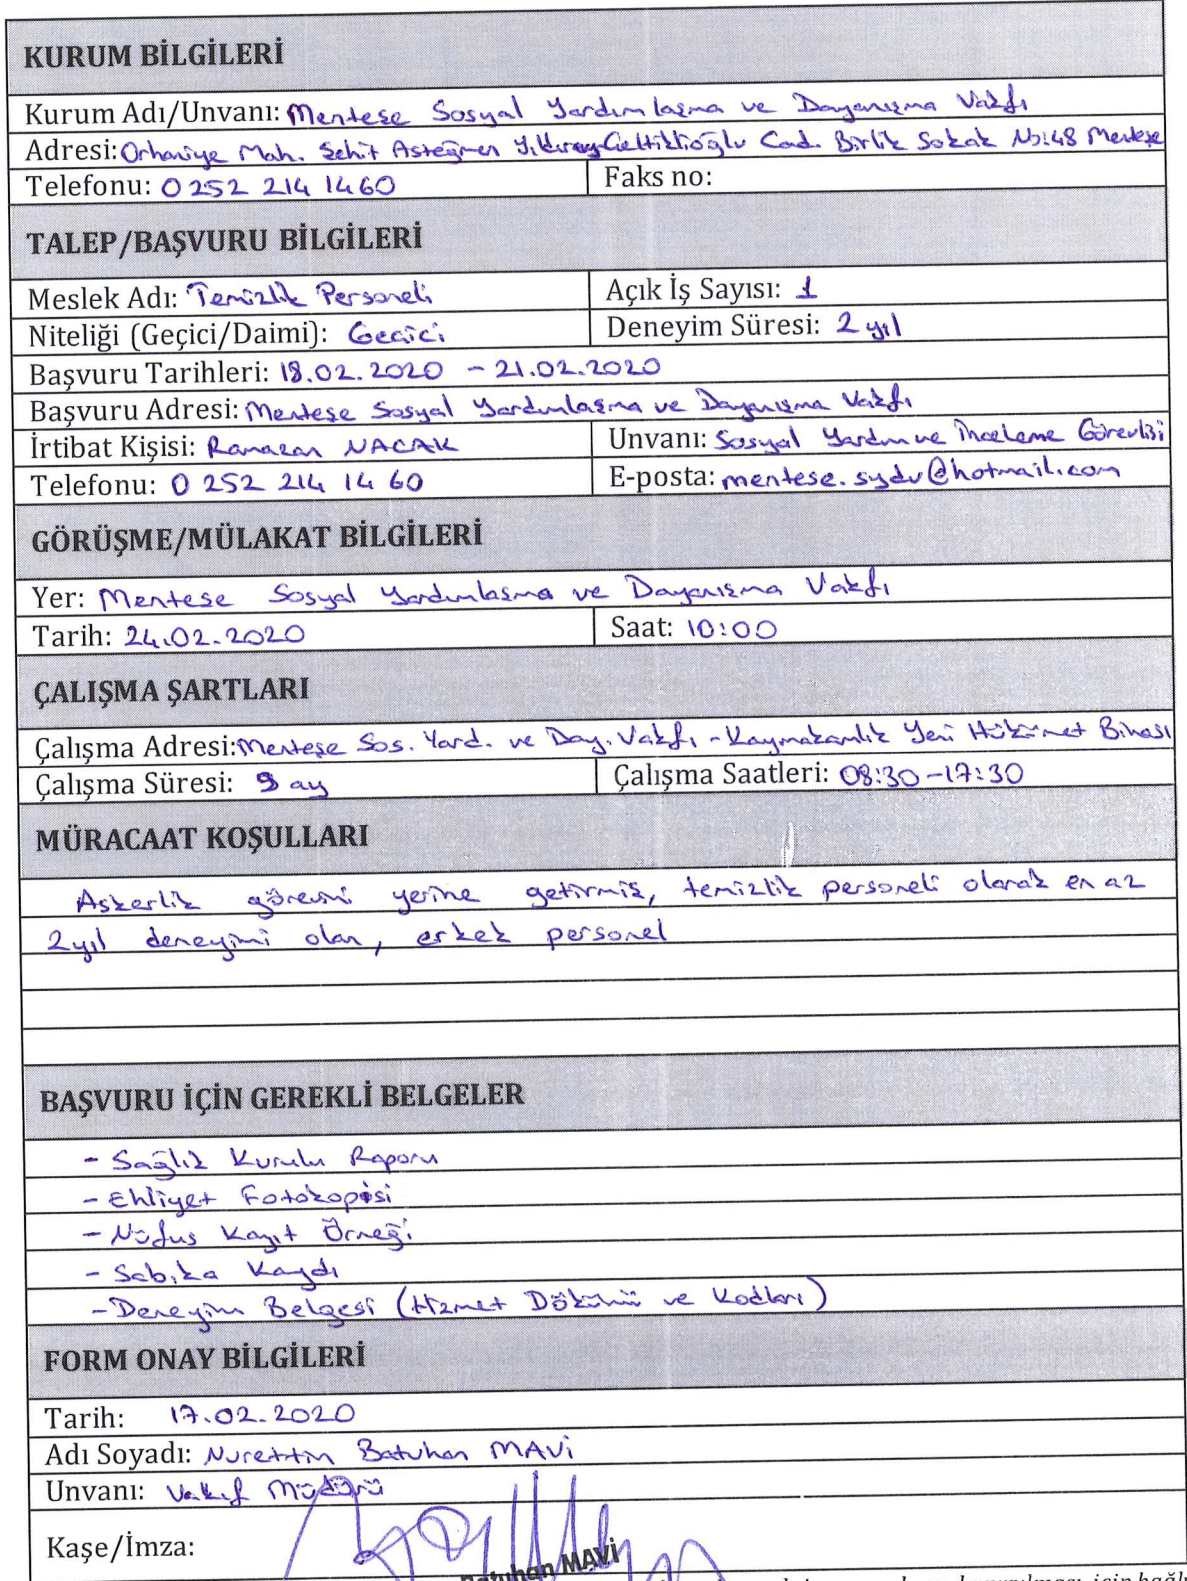 KURUM BİLGİLERİ
Kurum Adı/Unvanı: Menteşe Sosyal Yardımlaşma ve Dayanışma Vakfı
Adresi: Orhaniye Mah. Şehit Asteğmen Yıldıray Çeltiklioğlu Cad. Birlik Sokak No:48 Menteşe
Telefonu: 0 252 214 1460 Faks no:
TALEP/BAŞVURU BİLGİLERİ
Meslek Adı: Temizlik Personeli Açık İş Sayısı: 1
Niteliği (Geçici/Daimi): Geçici Deneyim Süresi: 2 yıl
Başvuru Tarihleri: 18.02.2020 - 21.02.2020
Başvuru Adresi: Menteşe Sosyal Yardımlaşma ve Dayanışma Vakfı
İrtibat Kişisi: Ramazan NACAK Unvanı: Sosyal Yardım ve İnceleme Görevlisi
Telefonu: 0 252 214 14 60 E-posta: mentese.sydv@hotmail.com
GÖRÜŞME/MÜLAKAT BİLGİLERİ
Yer: Menteşe Sosyal Yardımlaşma ve Dayanışma Vakfı
Tarih: 24.02.2020 Saat: 10:00
ÇALIŞMA ŞARTLARI
Çalışma Adresi: Menteşe Sos. Yard. ve Day. Vakfı - Kaymakamlık Yeni Hükümet Binası
Çalışma Süresi: 9 ay Çalışma Saatleri: 08:30-17:30
MÜRACAAT KOŞULLARI
Askerlik görevini yerine getirmiş, temizlik personeli olarak en az
2 yıl deneyimi olan, erkek personel
BAŞVURU İÇİN GEREKLİ BELGELER
- Sağlık Kurulu Raporu
- Ehliyet Fotokopisi
- Nüfus Kayıt Örneği
- Sabıka Kaydı
- Deneyim Belgesi (Hizmet Dökümü ve Kodları)
FORM ONAY BİLGİLERİ
Tarih: 17.02.2020
Adı Soyadı: Nurettin Batuhan MAVİ
Unvanı: Vakıf Müdürü
Kaşe/İmza:
Batuhan MAVİ
için bağlı